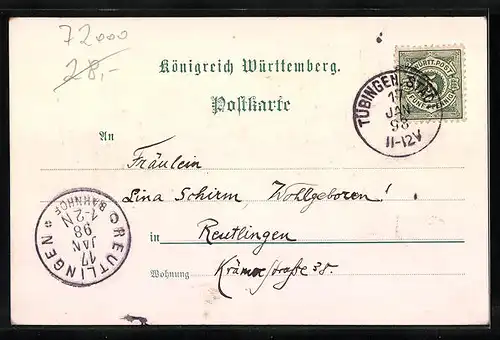 72000
28,-
Königreich Württemberg.
Postkarte
K. WÜRTT. POST
FÜNF PFENNIG
TÜBINGEN STADT
17
JAN
98
11-12V
An
Fräulein
Lina Schirm, Wohlgeboren!
in Reutlingen
Wohnung Krämerstraße 38.
REUTLINGEN
BAHNHOF
1-2N
98
JAN
17